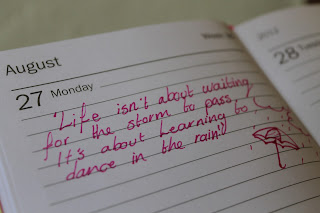 August
27 Monday
"Life isn't about waiting
for the storm to pass,
It's about learning to
dance in the rain!"
2012
28